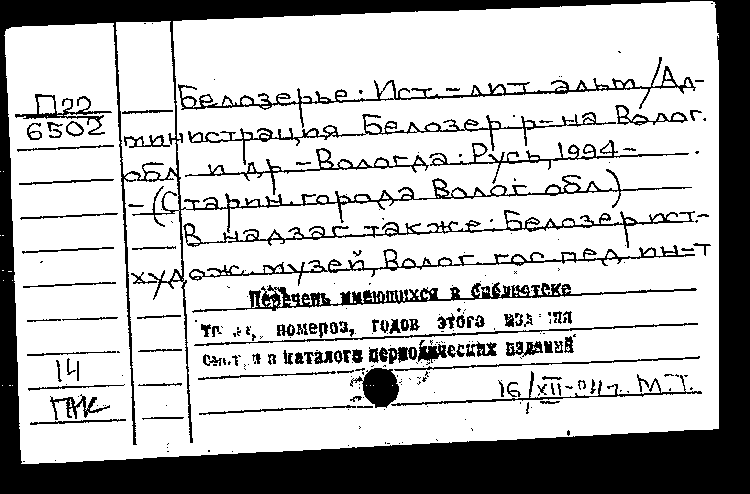 П22
6502
Белозерье: Ист.-лит. альм / Ад-
министрация Белозер. р-на Волог.
обл. и др. - Вологда: Русь, 1994-
- (Старин. города Волог. обл.)
В надзаг. также: Белозер. ист.-
худож. музей, Волог. гос. пед. ин-т
Перечень имеющихся в библиотеке
номеров, годов этого издания
в каталоге периодических изданий
14
ГПК
16/XII- М.Т.